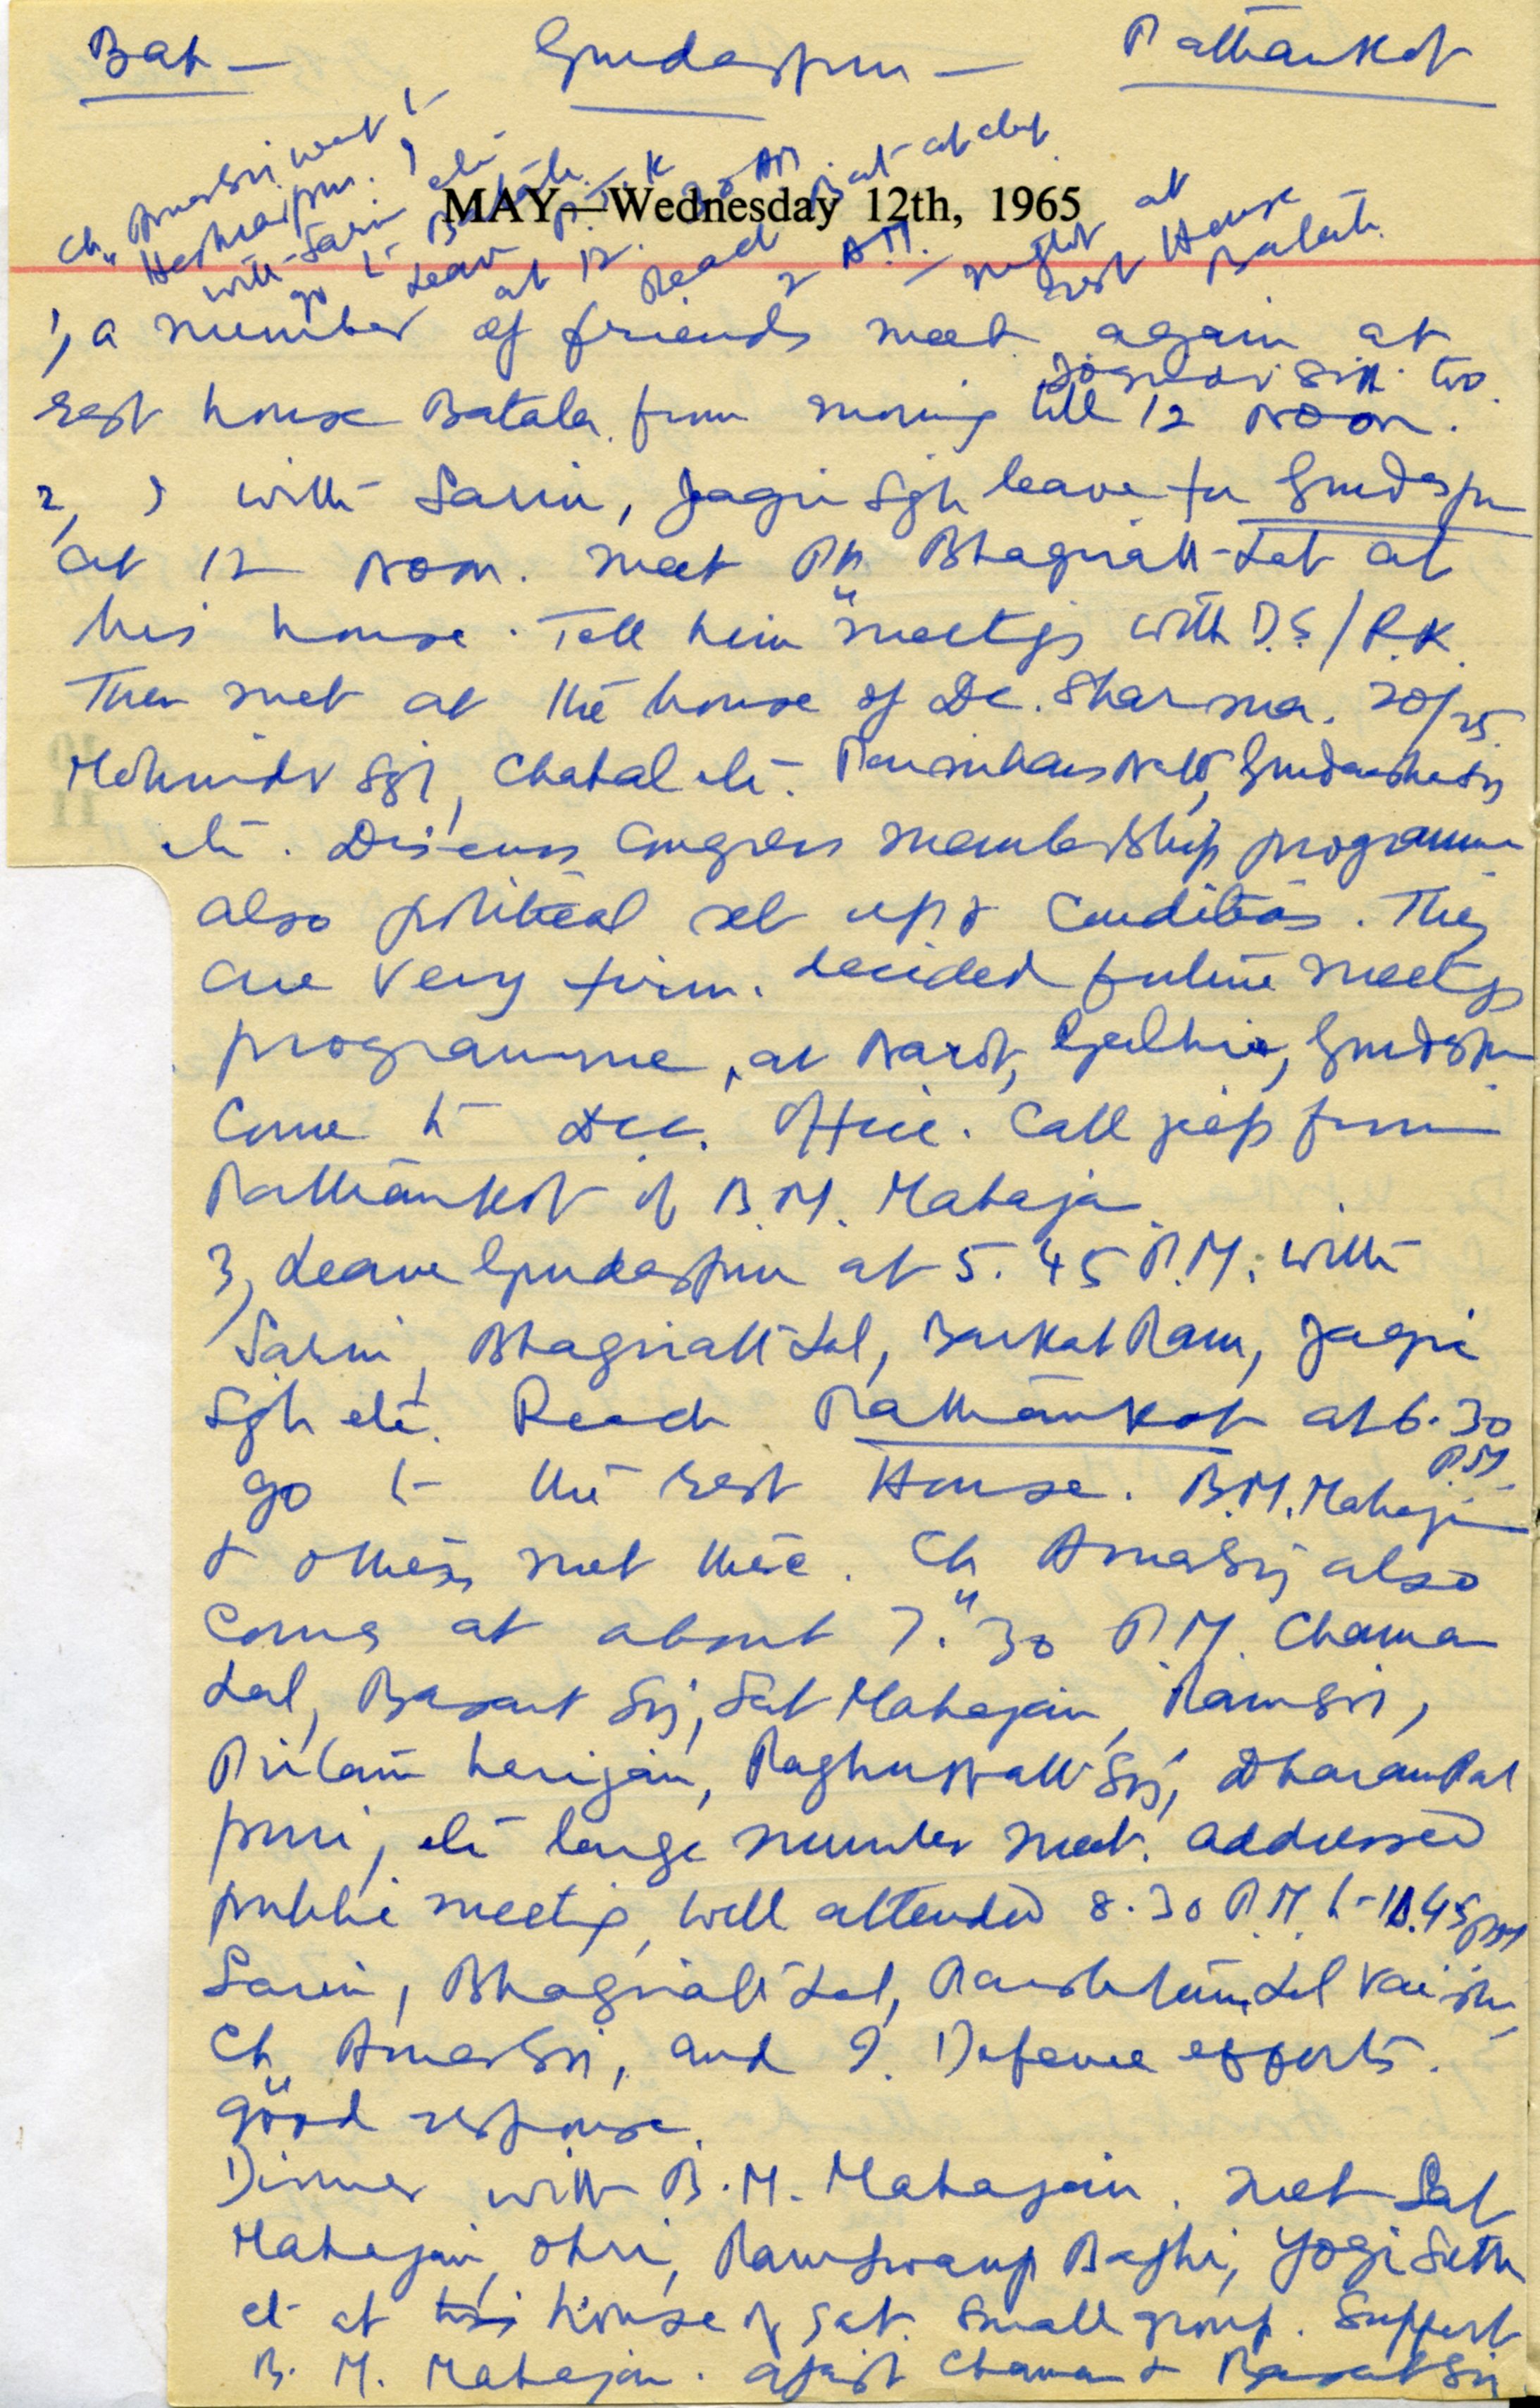 Bat — Gurdaspur — Pathankot
MAY—Wednesday 12th, 1965
Ch. Amar Sin went to
Hoshiarpur.
with Sarin etc
go to Batala.
Leave P.K
at 12. 30 AM
Reach Bat at abt
2 A.M. — night at
rest House
Batala.
1, a number of friends meet again at
Joginder Sin too.
rest house Batala from morning till 12 Noon.
2, I with Sarin, Jagir Sgh leave for Gurdaspur
at 12 Noon. meet Ph Bhagirath Lal at
his house. Tell him meetgs with D.S/R.K.
Then met at the house of Dr. Sharma. 20/25.
Mohinder Sgh, Chahal etc.
etc. Discuss Congress membership programme
also political set up & Conditions. They
are very firm. decided future meetgs
programme, at Narot, Gurdaspur
Come to Dcc. Office. Call jeep from
Pathankot of B.M. Mahajan.
3, Leave Gurdaspur at 5.45 P.M. with
Sarin, Bhagirath Lal, Barkat Ram, Jagir
Sgh etc. Reach Pathankot at 6.30
P.M.
go to the rest House. B.M. Mahajan
& others met there. Ch Amar Sin also
comes at about 7.30 P.M. Chaman
Lal, Basant Sin, Sat Mahajan, Ram Sin,
Pritam harijan, Raghunath Sin, Dharam Pal
puri, etc large number meet. addressed
public meeting, well attended 8.30 P.M. to 10.45 PM
Sarin, Bhagirath Lal, Lal
Ch Amar Sin, and I. Defence efforts.
good response.
Dinner with B.M. Mahajan. met Sat
Mahajan, Ohri, Ram Swarup Baghi, Yogi Seth
etc at house of Sat. Small group. Support
B. M. Mahajan. against Chaman & Basant Sin